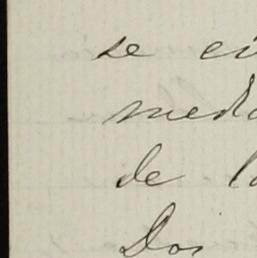 se ci
meda
de la
Dos